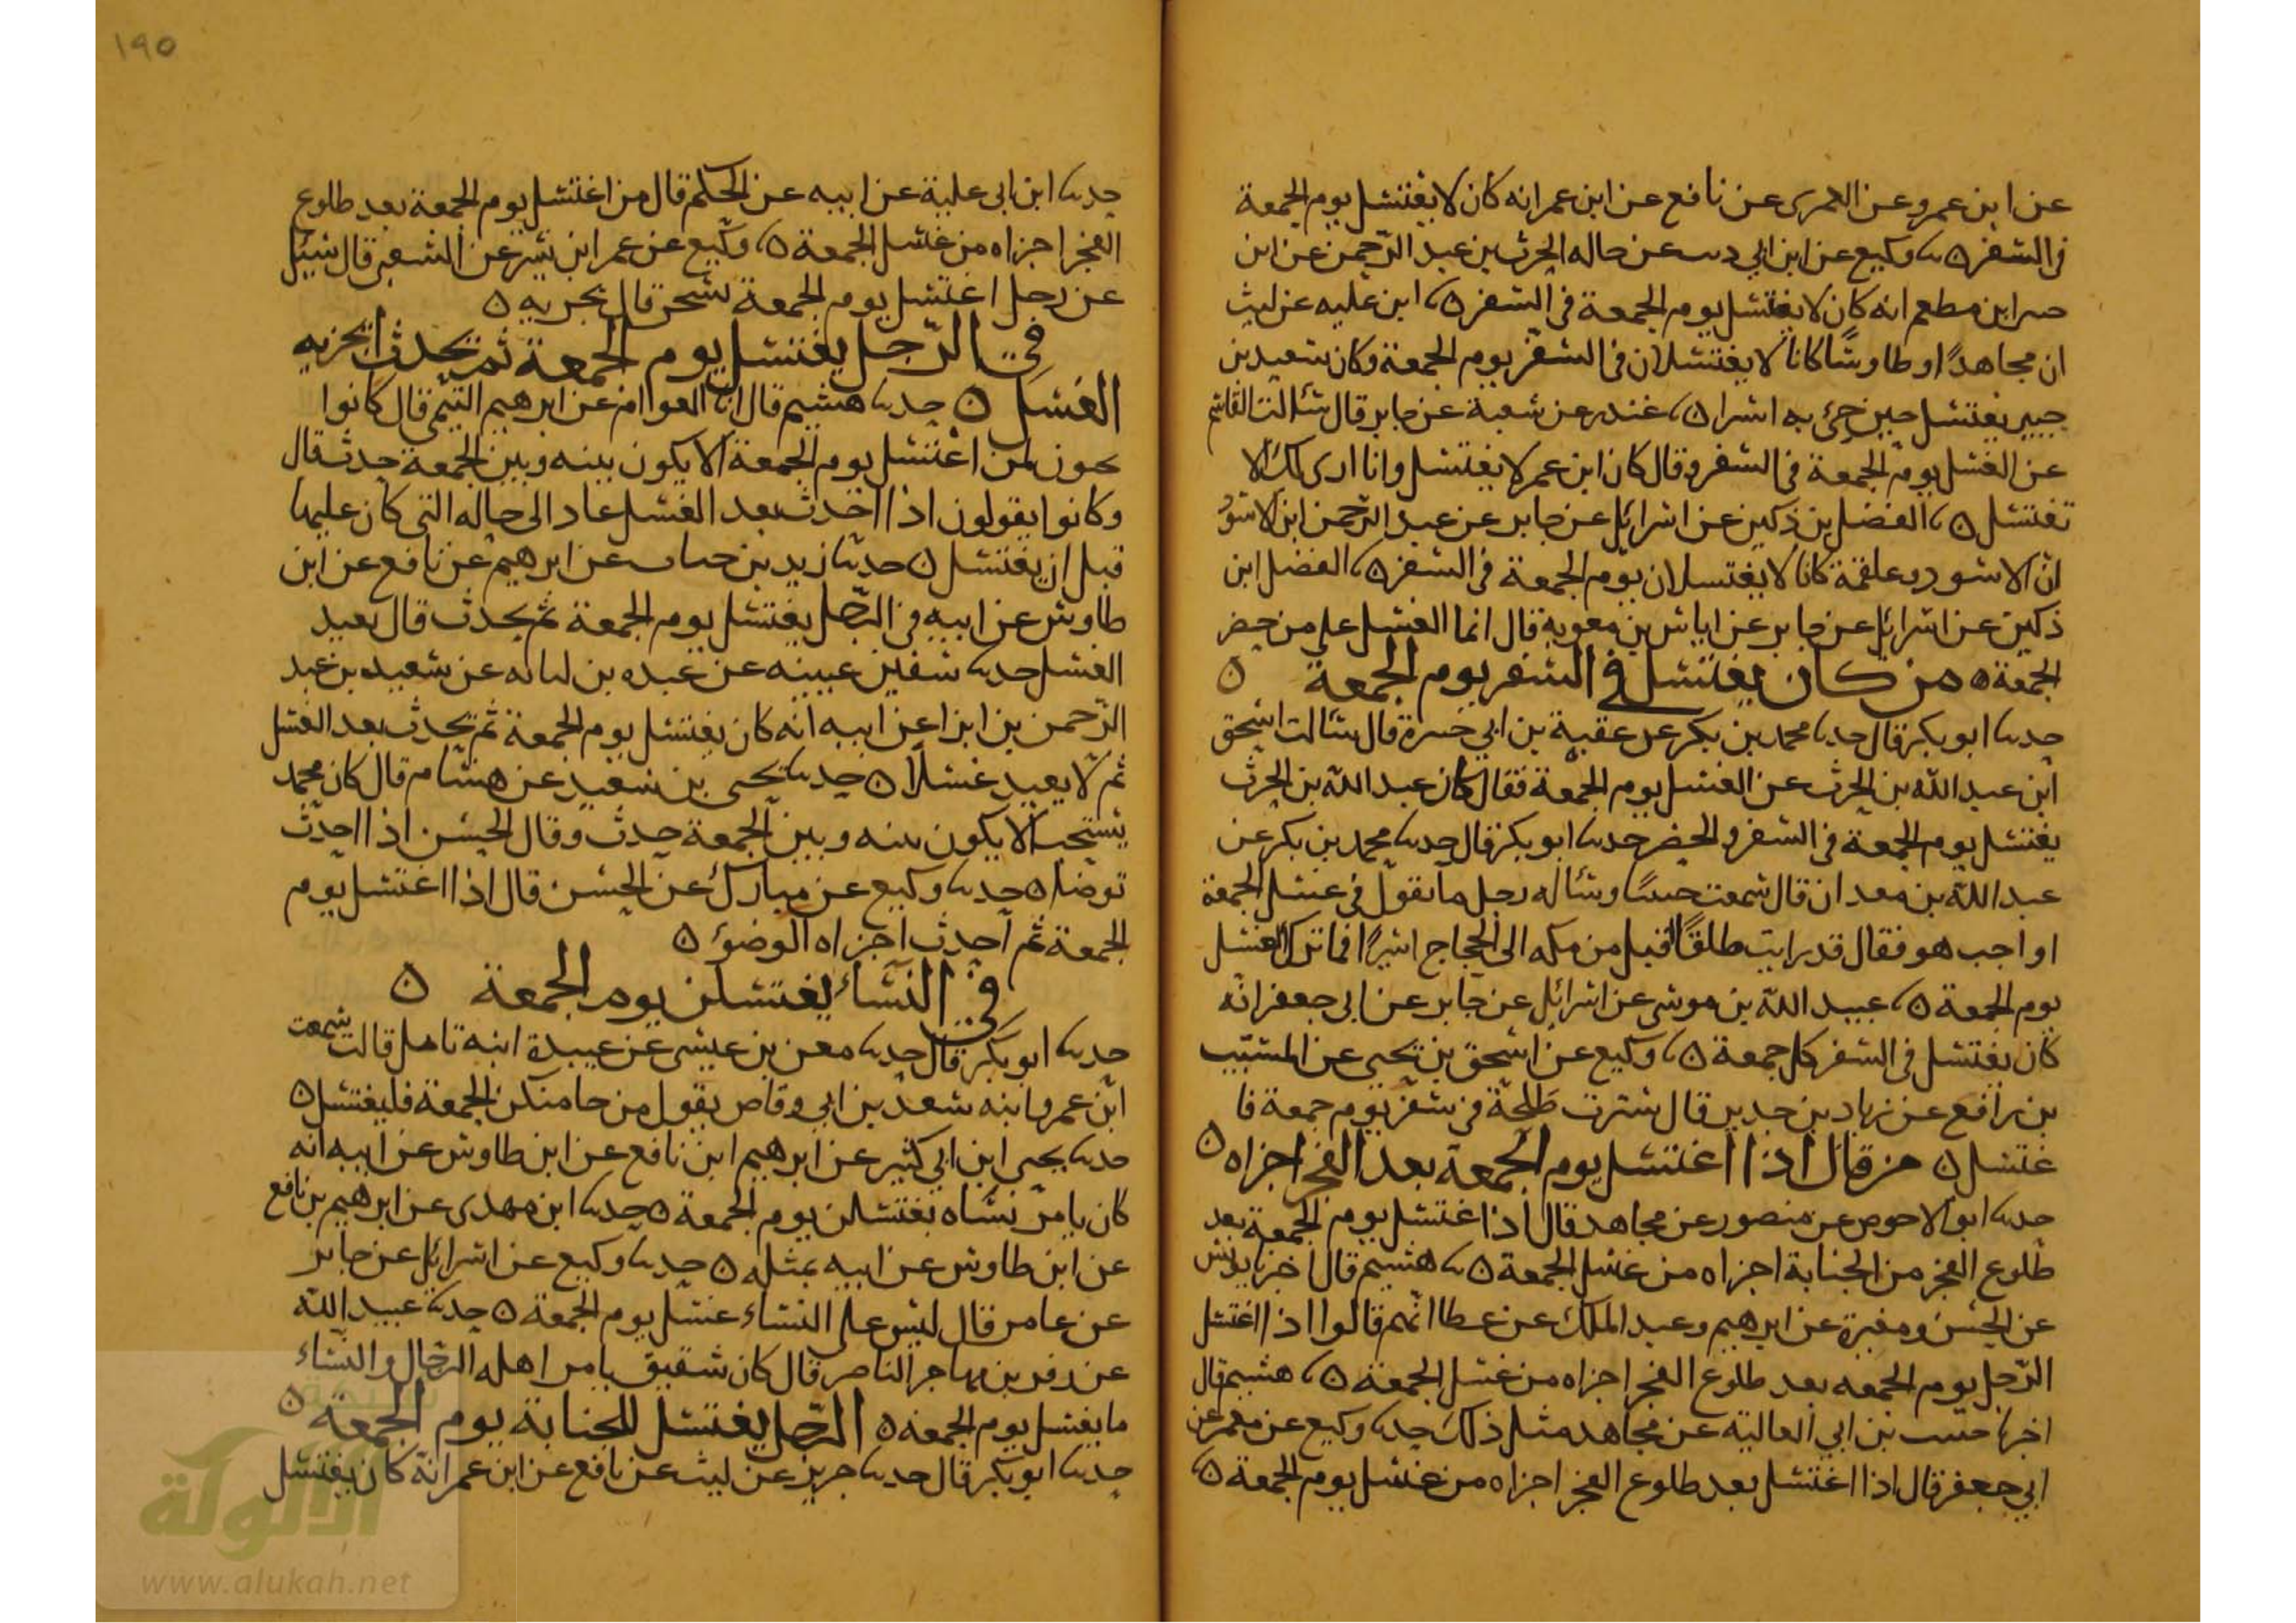 عن ابن عمر وعن العمرى عن نافع عن ابن عمر انه كان لا يغتسل يوم الجمعة
في السفر ٥ وكيع عن ابن ابي عن خاله الحرث بن عبد الرحمن عن ابن
ابن مطعم انه كان لا يغتسل يوم الجمعة في السفر ٥ ابن عليه عن ليث
ان مجاهدًا وطاوسًا كانا لا يغتسلان في السفر يوم الجمعة وكان سعيد بن
جبير يغتسل حين جئ به اسيرا ٥ غندر عن شعبة عن جابر قال سئالت القاسم
عن الغسل يوم الجمعة في السفر وقال كان ابن عمر لا يغتسل وانا ارى لك الا
تغتسل ٥ الفضل بن ذكين عن اسرائيل عن جابر عن عبد الرحمن ابن الاسود
ان الاسود وعلقمة كانا لا يغتسلان يوم الجمعة في السفر ٥ الفضل ابن
ذكين عن اسرائيل عن جابر عن اياس بن معوية قال انما الغسل على من حضر
الجمعة ٥ من كان يغتسل في السفر يوم الجمعة ٥
حدثنا ابو بكر قال حدثنا محمد بن بكر عن عقبة بن ابي قال سئالت اسحق
ابن عبد الله بن الحرث عن الغسل يوم الجمعة فقال كان عبد الله بن الحرث
يغتسل يوم الجمعة في السفر والحضر حدثنا ابو بكر قال حدثنا محمد بن بكر عن
عبد الله بن معدان قال سمعت وسئاله رجل ما تقول في غسل الجمعة
اواجب هو فقال قد رايت طلقًا اقبل من مكه الى الحجاج اسيرًا فما ترك الغسل
يوم الجمعة ٥ عبيد الله بن موسى عن اسرائيل عن جابر عن ابي جعفر انه
كان يغتسل في السفر كل جمعة ٥ وكيع عن اسحق بن يحيى عن المسيب
بن رافع عن زياد بن حدير قال سترت طلحة في سفر يوم جمعة فا
غتسل ٥ من قال اذا اغتسل يوم الجمعة بعد الفجر اجزاه ٥
حدثنا ابو الاحوص عن منصور عن مجاهد قال اذا اغتسل يوم الجمعة بعد
طلوع الفجر من الجنابة اجزاه من غسل الجمعة ٥ هشيم قال اخبرنا يونس
عن الحسن ومغيرة عن ابرهيم وعبد الملك عن عطا انهم قالوا اذا اغتسل
الرجل يوم الجمعه بعد طلوع الفجر اجزاه من غسل الجمعة ٥ هشيم قال
اخبرنا بن ابي العالية عن مجاهد مثل ذلك حدثنا وكيع عن معمر عن
ابي جعفر قال اذا اغتسل بعد طلوع الفجر اجزاه من غسل يوم الجمعة ٥
١٩٥
حدثنا ابن ابي علية عن ابيه عن الحكم قال من اغتسل يوم الجمعة بعد طلوع
الفجر اجزاه من غسل الجمعة ٥ وكيع عن عمر ابن عن الشعبى قال سئل
عن رجل اغتسل يوم الجمعة بسحر قال يجزيه ٥
في الرجل يغتسل يوم الجمعة ثم يحدث ايجزيه
الغسل ٥ حدثنا هشيم قال انا العوام عن ابرهيم التيمى قال كانوا
يحبون لمن اغتسل يوم الجمعة الا يكون بينه وبين الجمعة حدث قال
وكانوا يقولون اذا احدث بعد الغسل عاد الى حاله التى كان عليها
قبل ان يغتسل ٥ حدثنا زيد بن حباب عن ابرهيم عن نافع عن ابن
طاوس عن ابيه في الرجل يغتسل يوم الجمعة ثم يحدث قال يعيد
الغسل حدثنا سفين عيينه عن عبده بن لبابه عن سعيد بن عبد
الرحمن بن ابزا عن ابيه انه كان يغتسل يوم الجمعة ثم يحدث بعد الغسل
ثم لا يعيد غسلًا ٥ حدثنا يحيى بن سعيد عن هشام قال كان محمد
يستحب الا يكون بينه وبين الجمعة حدث وقال الحسن اذا احدث
توضا ٥ حدثنا وكيع عن مبارك عن الحسن قال اذا اغتسل يوم
الجمعة ثم احدث اجزاه الوضوء ٥
في النساء يغتسلن يوم الجمعة ٥
حدثنا ابو بكر قال حدثنا معن بن عيسى عن عبيدة ابنة نابل قالت سمعت
ابن عمر وابنه سعد بن ابي وقاص يقول من جا منكن الجمعة فليغتسل ٥
حدثنا يحيى ابن ابي كثير عن ابرهيم ابن نافع عن ابن طاوس عن ابيه انه
كان يامر نساه يغتسلن يوم الجمعة ٥ حدثنا ابن مهدى عن ابرهيم بن نافع
عن ابن طاوس عن ابيه بمثله ٥ حدثنا وكيع عن اسرائيل عن جابر
عن عامر قال ليس على النساء غسل يوم الجمعة ٥ حدثنا عبيد الله
عن بن مهاجر الناصر قال كان شقيق يامر اهله الرجال والنساء
ما يغسل يوم الجمعة ٥ الرجل يغتسل للجنابة يوم الجمعة ٥
حدثنا ابو بكر قال حدثنا جرير عن ليث عن نافع عن ابن عمر انه كان يغتسل
شبكة
الألوكة
www.alukah.net